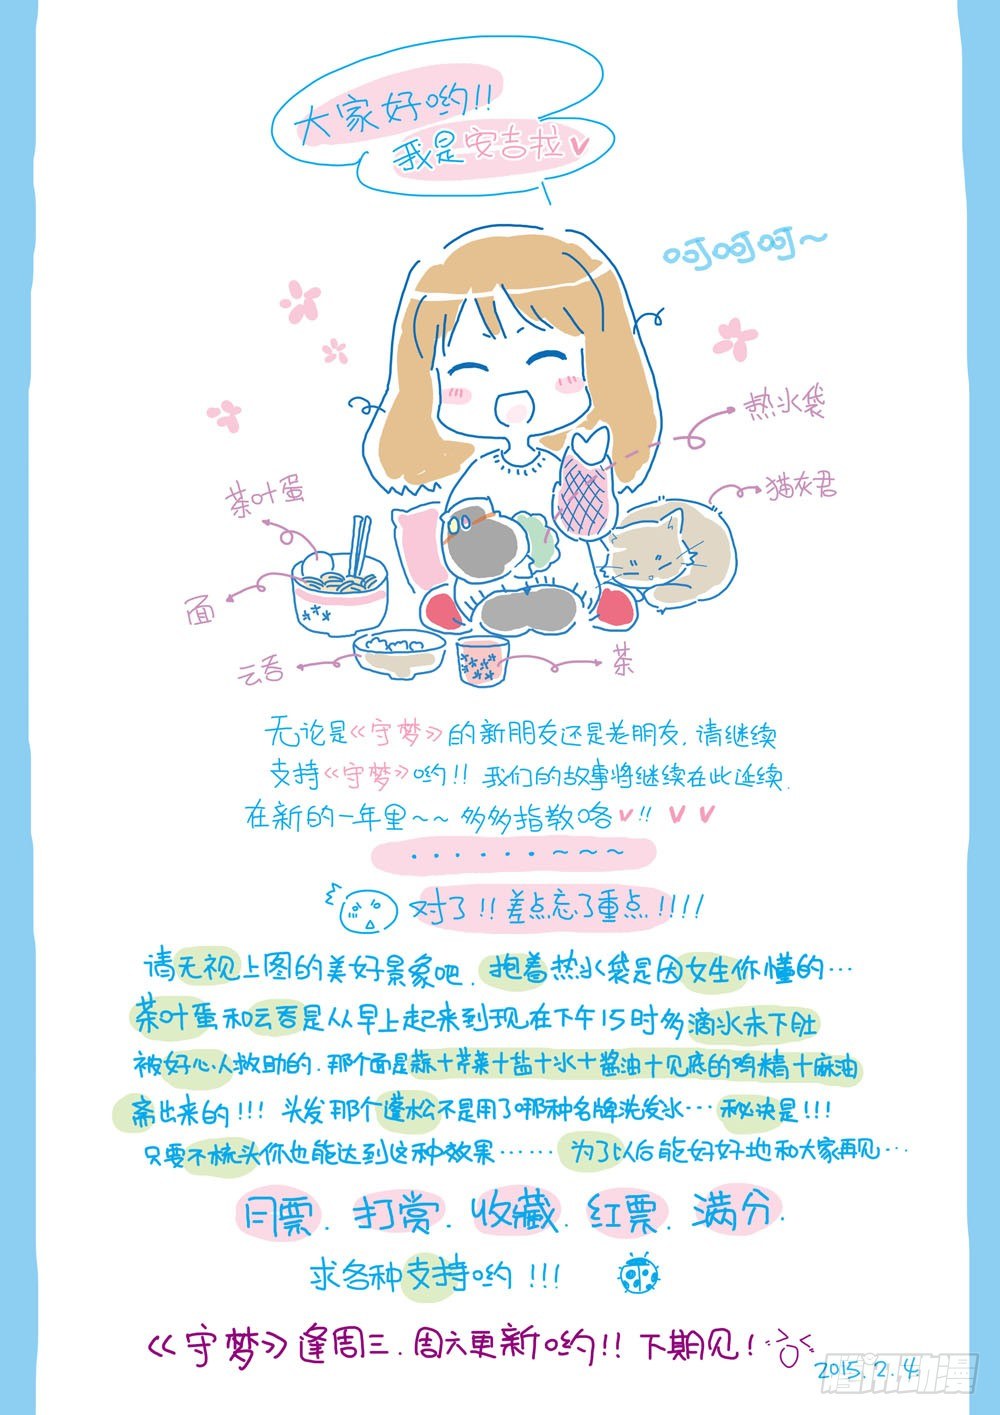 大家好哟!!
我是安吉拉
呵呵呵~
热水袋
猫灰君
茶叶蛋
面
云吞
茶
无论是《守梦》的新朋友还是老朋友.请继续
支持《守梦》哟!! 我们的故事将继续在此延续.
在新的一年里~~多多指教咯!!
······~~~
对了!!差点忘了重点!!!!
请无视上图的美好景象吧.抱着热水袋是因女生你懂的…
茶叶蛋和云吞是从早上起来到现在下午15时多滴水未下肚
被好心人救助的.那个面是蒜+芹菜+盐+水+酱油+见底的鸡精+麻油
斋出来的!!! 头发那个蓬松不是用了哪种名牌洗发水…秘诀是!!!
只要不梳头你也能达到这种效果……为了以后能好好地和大家再见…
月票.打赏.收藏.红票.满分.
求各种支持哟!!!
《守梦》逢周三.周六更新哟!!下期见!
2015.2.4.
腾讯动漫